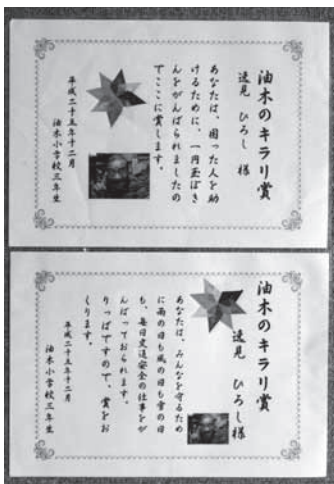 油木のキラリ賞
逸見 ひろし 様
あなたは、困った人を助
けるために、一円玉ぼき
んをがんばられましたの
でここに賞します。
平成二十五年十二月
油木小学校三年生
油木のキラリ賞
逸見 ひろし 様
あなたは、みんなを守るため
に雨の日も風の日も雪の日
も、毎日交通安全の仕事をが
んばっておられます。
りっぱですので、賞をお
くります。
平成二十五年十二月
油木小学校三年生